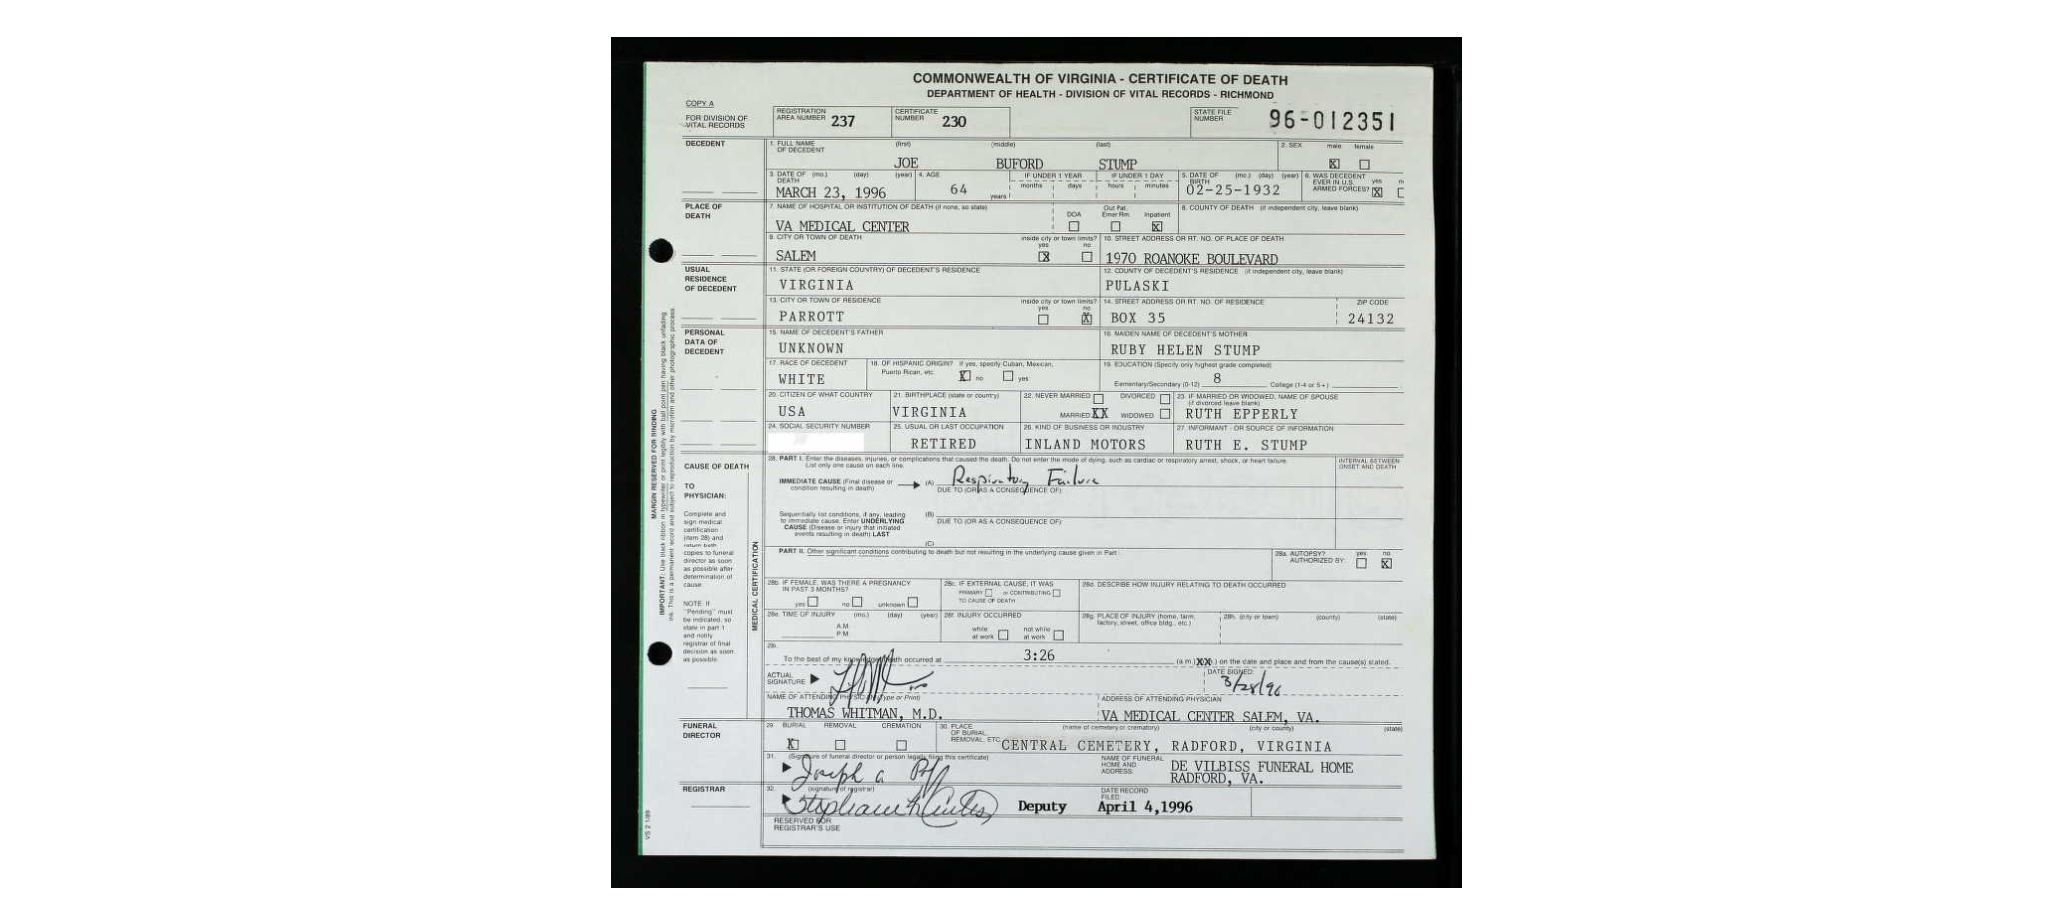 COMMONWEALTH OF VIRGINIA - CERTIFICATE OF DEATH
DEPARTMENT OF HEALTH - DIVISION OF VITAL RECORDS - RICHMOND
COPY A
FOR DIVISION OF VITAL RECORDS
REGISTRATION AREA NUMBER 237
CERTIFICATE NUMBER 230
STATE FILE NUMBER 96-012351
DECEDENT
1. FULL NAME OF DECEDENT (first) (middle) (last)
JOE BUFORD STUMP
2. SEX male X female
3. DATE OF DEATH (mo.) (day) (year)
MARCH 23, 1996
4. AGE 64 years
IF UNDER 1 YEAR months days
IF UNDER 1 DAY hours minutes
5. DATE OF BIRTH (mo.) (day) (year)
02-25-1932
6. WAS DECEDENT EVER IN U.S. ARMED FORCES? yes X
PLACE OF DEATH
7. NAME OF HOSPITAL OR INSTITUTION OF DEATH (if none, so state)
VA MEDICAL CENTER
DOA Out Pat. Emer Rm. Inpatient X
8. COUNTY OF DEATH (if independent city, leave blank)
9. CITY OR TOWN OF DEATH
SALEM
inside city or town limits? yes X no
10. STREET ADDRESS OR RT. NO. OF PLACE OF DEATH
1970 ROANOKE BOULEVARD
USUAL RESIDENCE OF DECEDENT
11. STATE (OR FOREIGN COUNTRY) OF DECEDENT'S RESIDENCE
VIRGINIA
12. COUNTY OF DECEDENT'S RESIDENCE (if independent city, leave blank)
PULASKI
13. CITY OR TOWN OF RESIDENCE
PARROTT
inside city or town limits? yes no X
14. STREET ADDRESS OR RT. NO. OF RESIDENCE
BOX 35
ZIP CODE
24132
PERSONAL DATA OF DECEDENT
15. NAME OF DECEDENT'S FATHER
UNKNOWN
16. MAIDEN NAME OF DECEDENT'S MOTHER
RUBY HELEN STUMP
17. RACE OF DECEDENT
WHITE
18. OF HISPANIC ORIGIN? If yes, specify Cuban, Mexican, Puerto Rican, etc. X no yes
19. EDUCATION (Specify only highest grade completed)
Elementary/Secondary (0-12) 8 College (1-4 or 5+)
20. CITIZEN OF WHAT COUNTRY
USA
21. BIRTHPLACE (state or country)
VIRGINIA
22. NEVER MARRIED DIVORCED
MARRIED XX WIDOWED
23. IF MARRIED OR WIDOWED, NAME OF SPOUSE (if divorced leave blank)
RUTH EPPERLY
24. SOCIAL SECURITY NUMBER
25. USUAL OR LAST OCCUPATION
RETIRED
26. KIND OF BUSINESS OR INDUSTRY
INLAND MOTORS
27. INFORMANT - OR SOURCE OF INFORMATION
RUTH E. STUMP
CAUSE OF DEATH
TO PHYSICIAN:
Complete and sign medical certification (item 28) and return both copies to funeral director as soon as possible after determination of cause.
NOTE: If "Pending" must be indicated, so state in part 1 and notify registrar of final decision as soon as possible
MEDICAL CERTIFICATION
28. PART I. Enter the diseases, injuries, or complications that caused the death. Do not enter the mode of dying, such as cardiac or respiratory arrest, shock, or heart failure. List only one cause on each line.
INTERVAL BETWEEN ONSET AND DEATH
IMMEDIATE CAUSE (Final disease or condition resulting in death) (A) Respiratory Failure
DUE TO (OR AS A CONSEQUENCE OF):
Sequentially list conditions, if any, leading to immediate cause. Enter UNDERLYING CAUSE (Disease or injury that initiated events resulting in death) LAST
(B)
DUE TO (OR AS A CONSEQUENCE OF):
(C)
PART II. Other significant conditions contributing to death but not resulting in the underlying cause given in Part
28a. AUTOPSY? yes no X
AUTHORIZED BY:
28b. IF FEMALE, WAS THERE A PREGNANCY IN PAST 3 MONTHS?
yes no unknown
28c. IF EXTERNAL CAUSE, IT WAS
PRIMARY or CONTRIBUTING
TO CAUSE OF DEATH
28d. DESCRIBE HOW INJURY RELATING TO DEATH OCCURRED
28e. TIME OF INJURY (mo.) (day) (year)
A.M.
P.M.
28f. INJURY OCCURRED
while at work not while at work
28g. PLACE OF INJURY (home, farm, factory, street, office bldg., etc.)
28h. (city or town) (county) (state)
28i.
To the best of my knowledge, death occurred at 3:26 (a.m.) XX on the date and place and from the cause(s) stated.
ACTUAL SIGNATURE
DATE SIGNED:
3/28/96
NAME OF ATTENDING PHYSICIAN (Type or Print)
THOMAS WHITMAN, M.D.
ADDRESS OF ATTENDING PHYSICIAN
VA MEDICAL CENTER SALEM, VA.
FUNERAL DIRECTOR
29. BURIAL X REMOVAL CREMATION
30. PLACE OF BURIAL, REMOVAL, ETC. (name of cemetery or crematory) (city or county) (state)
CENTRAL CEMETERY, RADFORD, VIRGINIA
31. (Signature of funeral director or person legally filing this certificate)
Joseph a
NAME OF FUNERAL HOME AND ADDRESS:
DE VILBISS FUNERAL HOME
RADFORD, VA.
REGISTRAR
32. (signature of registrar)
Deputy
DATE RECORD FILED:
April 4, 1996
RESERVED FOR REGISTRAR'S USE
VS 2 1/89
MARGIN RESERVED FOR BINDING
IMPORTANT: Use black ribbon in typewriter or print legibly with ball point pen having black unfading ink. This is a permanent record and subject to reproduction by microfilm and other photographic process.